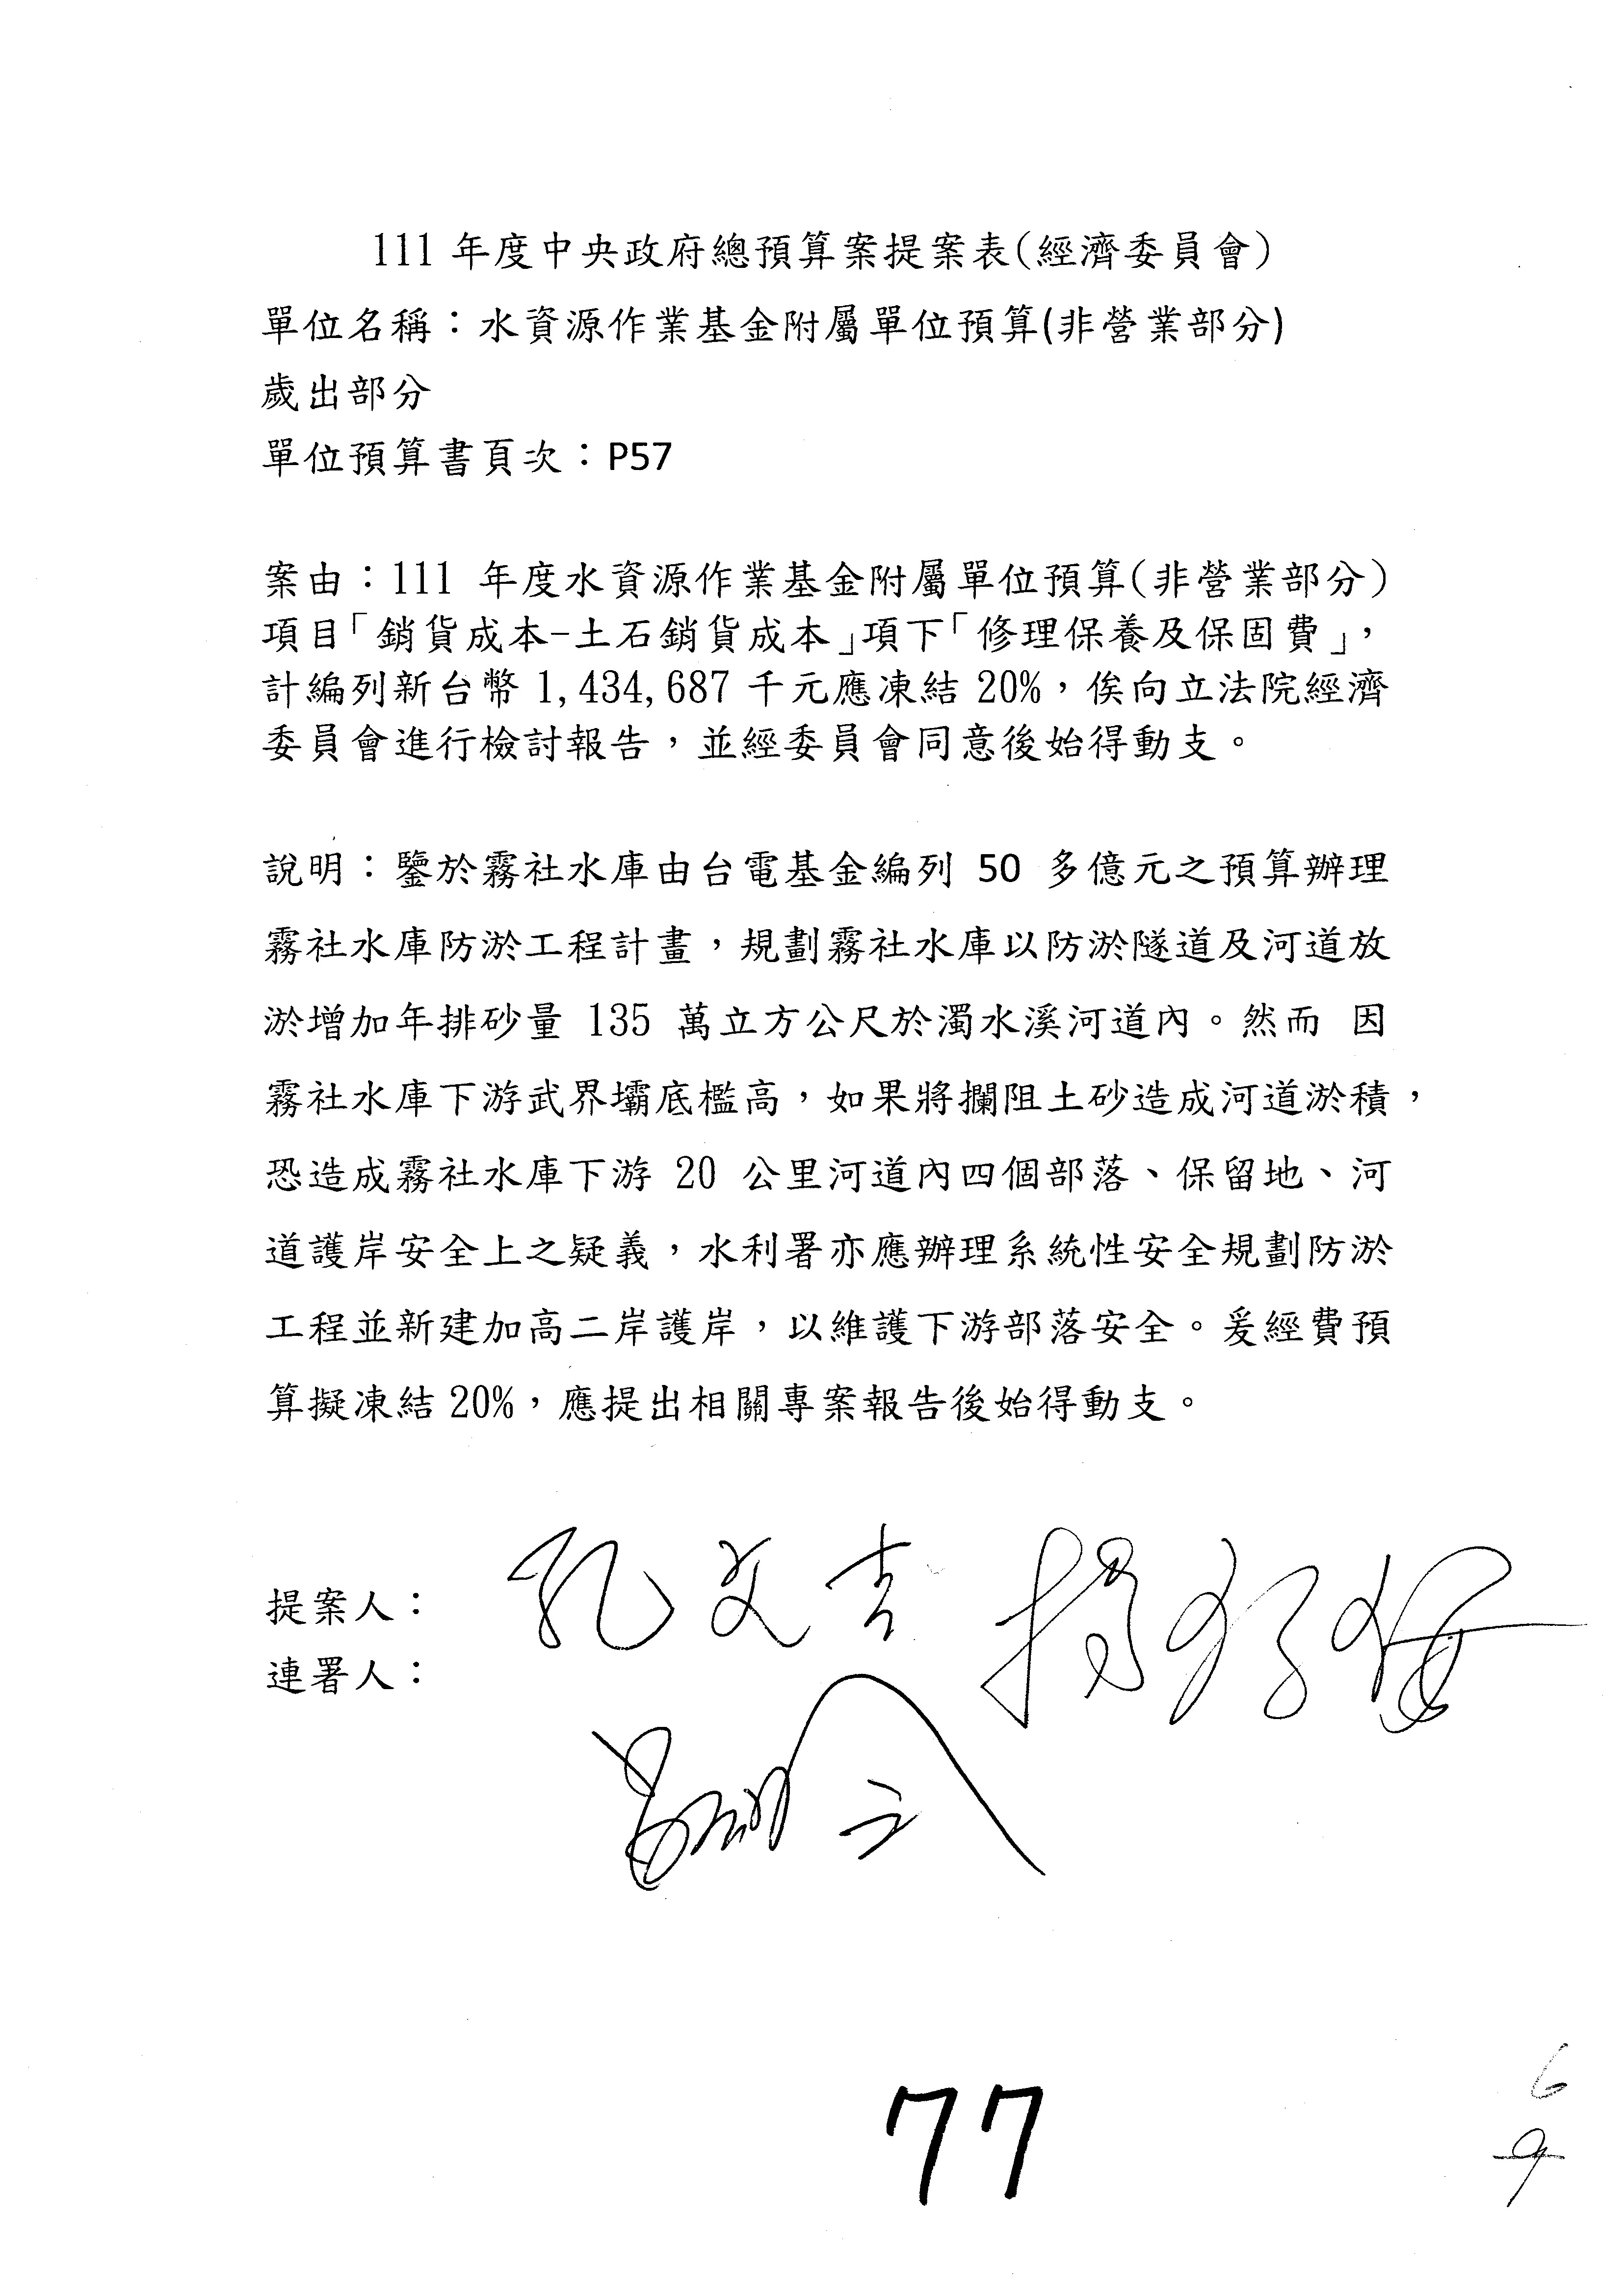 111 年度中央政府總預算案提案表(經濟委員會)
單位名稱：水資源作業基金附屬單位預算(非營業部分)
歲出部分
單位預算書頁次：P57
案由：111 年度水資源作業基金附屬單位預算(非營業部分)
項目「銷貨成本-土石銷貨成本」項下「修理保養及保固費」，
計編列新台幣 1,434,687 千元應凍結 20%，俟向立法院經濟
委員會進行檢討報告，並經委員會同意後始得動支。
說明：鑒於霧社水庫由台電基金編列 50 多億元之預算辦理
霧社水庫防淤工程計畫，規劃霧社水庫以防淤隧道及河道放
淤增加年排砂量 135 萬立方公尺於濁水溪河道內。然而 因
霧社水庫下游武界壩底檻高，如果將攔阻土砂造成河道淤積，
恐造成霧社水庫下游 20 公里河道內四個部落、保留地、河
道護岸安全上之疑義，水利署亦應辦理系統性安全規劃防淤
工程並新建加高二岸護岸，以維護下游部落安全。爰經費預
算擬凍結 20%，應提出相關專案報告後始得動支。
提案人：孔文吉
連署人：
77
6
9